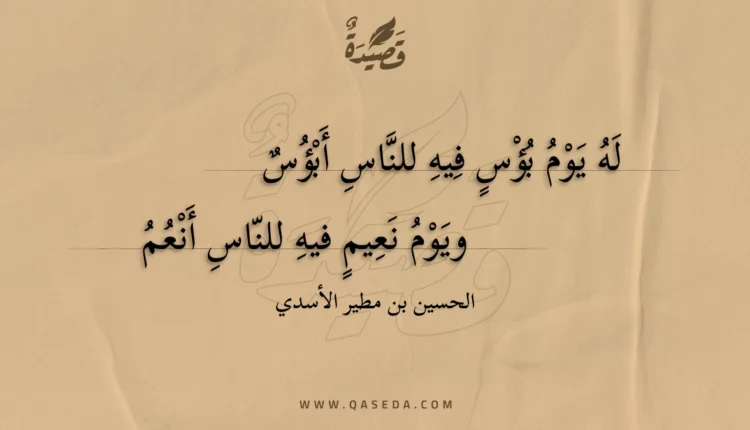 قَصِيدَةٌ
لَهُ يَوْمُ بُؤْسٍ فِيهِ للنَّاسِ أَبْؤُسٌ
ويَوْمُ نَعِيمٍ فيهِ للنّاسِ أَنْعُمُ
الحسين بن مطير الأسدي
WWW.QASEDA.COM